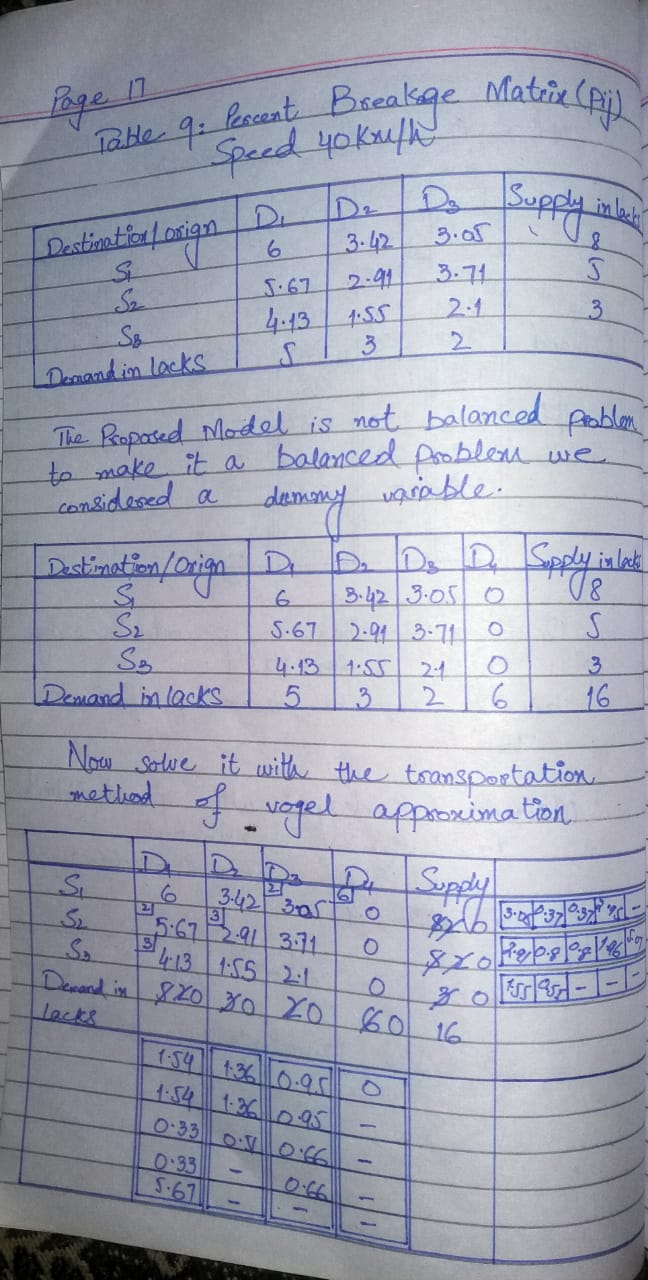 Page 17
Table 9: Percent Breakage Matrix (Pij)
Speed 40 km/h
Destination/orign D1 D2 D3 Supply in lack
S1 6 3.42 3.05 8
S2 5.67 2.91 3.71 5
S3 4.13 1.55 2.1 3
Demand in lacks 5 3 2
The Proposed Model is not balanced problem
to make it a balanced problem we
considered a dummy variable.
Destination/Orign D1 D2 D3 D4 Supply in lack
S1 6 3.42 3.05 0 8
S2 5.67 2.91 3.71 0 5
S3 4.13 1.55 2.1 0 3
Demand in lacks 5 3 2 6 16
Now solve it with the transportation
method of vogel approximation
D1 D2 D3 D4 Supply
S1 6 3.42 2 3.05 6 0 8 2 6 3.05 0.37 0.37 -
S2 2 5.67 3 2.91 3.71 0 5 2 0 2.91 0.8 0.8
S3 3 4.13 1.55 2.1 0 3 0 1.55 0.55 - - -
Demand in lacks 5 2 0 3 0 2 0 6 0 16
1.54 1.36 0.95 0
1.54 1.36 0.95 -
0.33 0.51 0.66 -
0.33 - 0.66 -
5.67 - - -